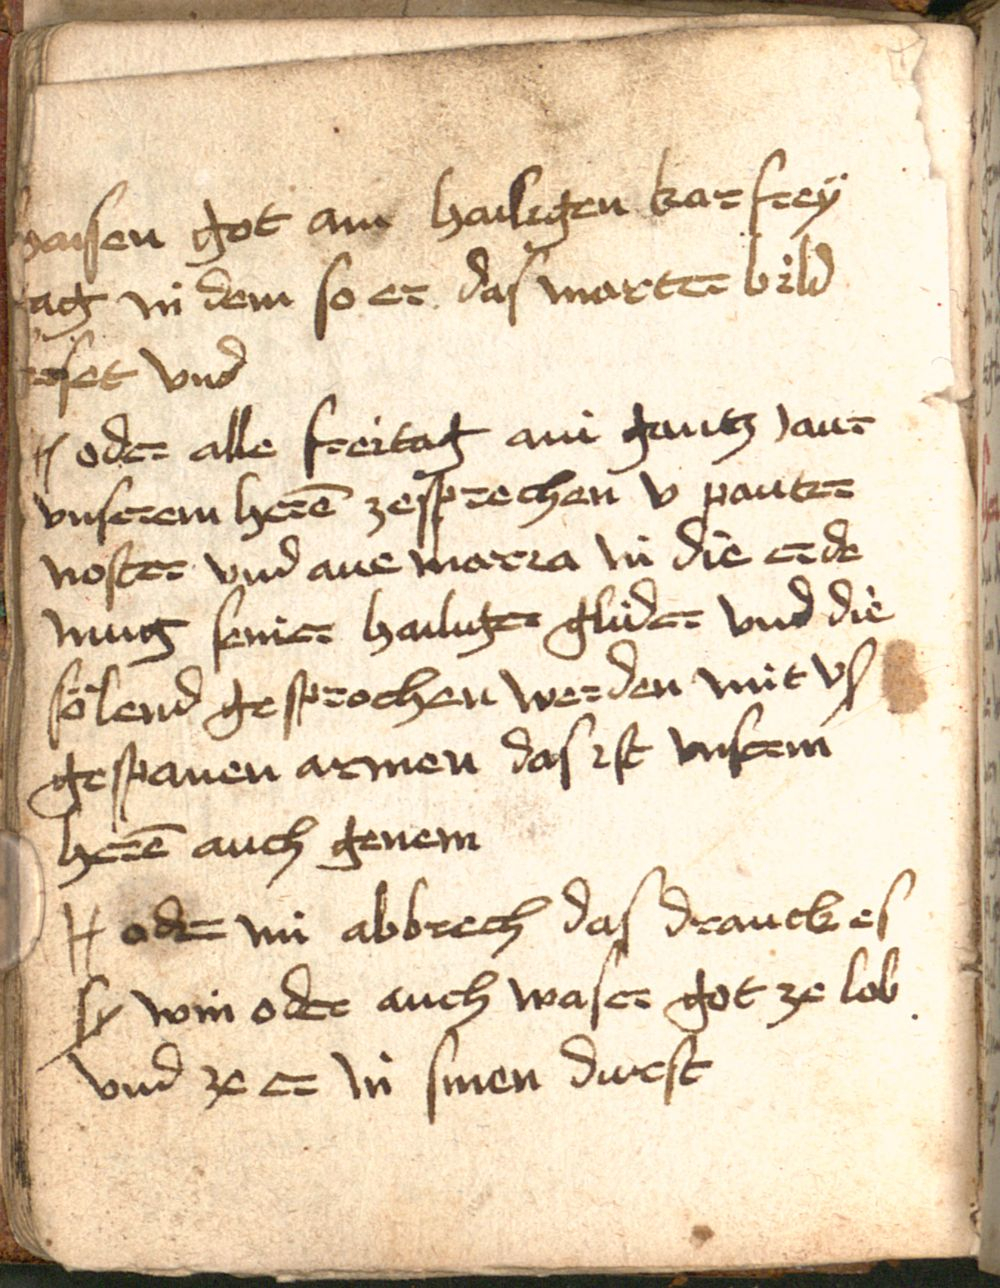 haisen got am hailigen karfrey
tag in dem so er das marter bild
und
oder alle freitag ain gantz jaur
unserem herē zesprechen v pauter
noster und ave maria in die erde
nung seiner hailiger glider und die
sölend gesprochen werden mit us
gespanen armen das ist unserm
herē auch genem
oder im abbrech das dranck es
sy win oder auch waser got ze lob
und ze er in sinen durst